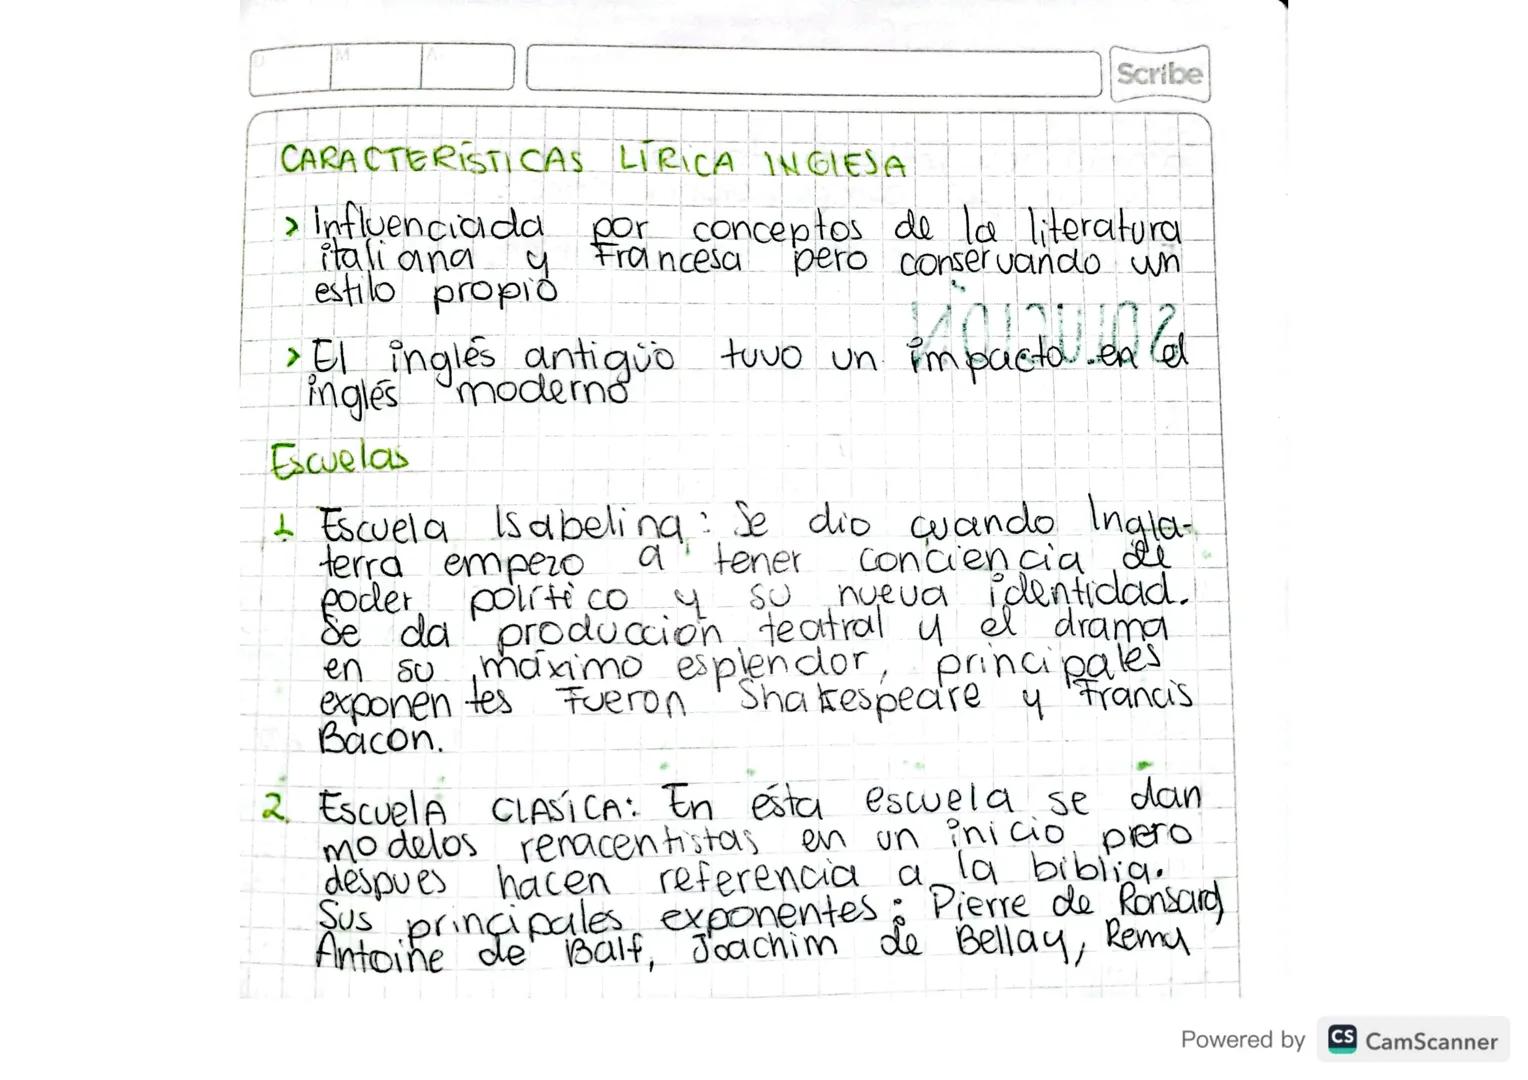 D M A
Scribe
CARACTERÍSTICAS LÍRICA INGLESA
> Influenciada por conceptos de la literatura
italiana y francesa pero conservando un
estilo propio
SOLUCIÓN
> El inglés antigüo tuvo un impacto en el
inglés moderno
Escuelas
1 Escuela Isabelina: Se dio cuando Ingla-
terra empezo a tener conciencia de
poder político y su nueva identidad.
Se da producción teatral y el drama
en su máximo esplendor, principales
exponentes fueron Shakespeare y Francis
Bacon.
2. EscuelA CLASÍCA: En ésta escuela se dan
modelos renacentistas en un inicio pero
despues hacen referencia a la biblia.
Sus principales exponentes: Pierre de Ronsard,
Antoine de Balf, Joachim de Bellay, Remy
Powered by CS CamScanner